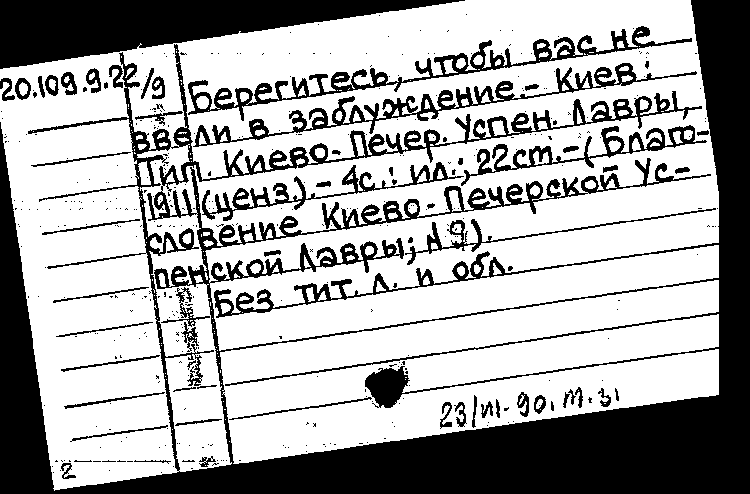 20.109.9.22/9
Берегитесь, чтобы вас не
ввели в заблуждение.- Киев:
Тип. Киево-Печер. Успен. Лавры,
1911 (ценз.).- 4с.: ил.; 22ст.-(Благо-
словение Киево-Печерской Ус-
пенской Лавры; № 9).
Без тит. л. и обл.
23/VI-90. М.З.
2